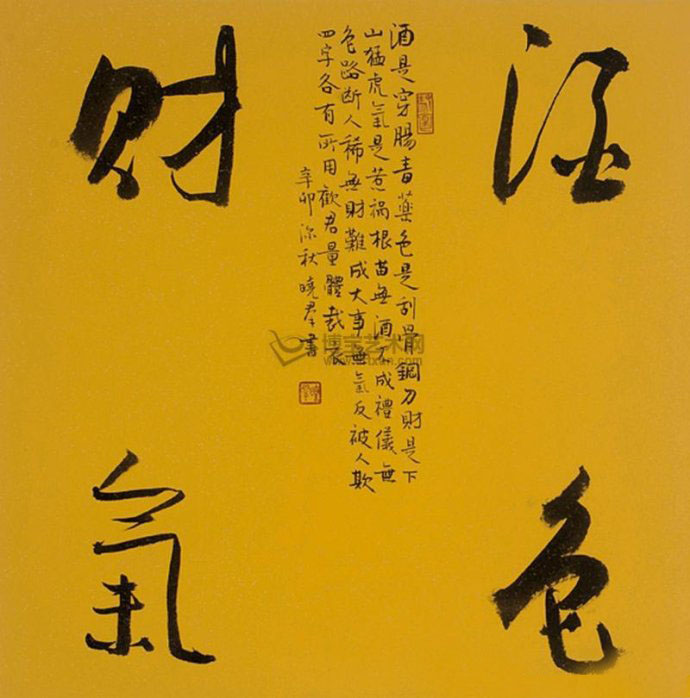 酒
色
酒是穿腸毒藥色是刮骨鋼刀財是下
山猛虎氣是惹祸根苗無酒不成禮儀無
色路断人稀無財難成大事無氣反被人欺
四字各有所用勸君量體裁衣
辛卯深秋曉群書
财
氣
博宝艺术网